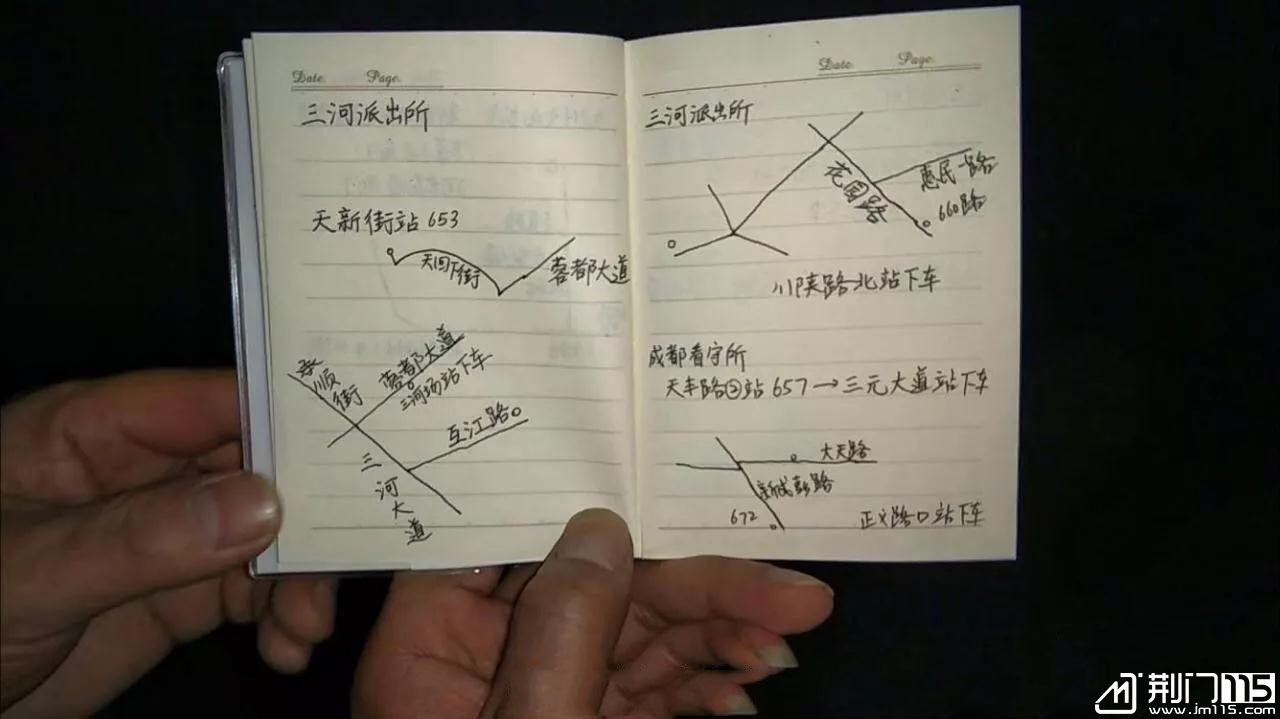 Date.
Page.
三河派出所
天新街站 653
天回下街
蓉都大道
顺
街
蓉都大道
三河场站下车
互江路
三河大道
Date
Page
三河派出所
花园路
惠民一路
660路
川陕路北站下车
成都看守所
天丰路②站 657→三元大道站下车
大天路
新成彭路
672
正义路口站下车
荆门115
www.jm115.com